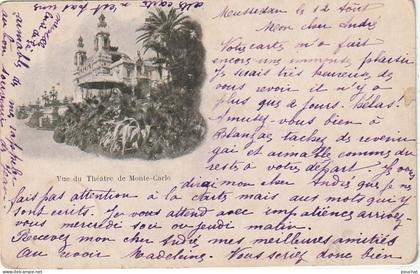 Moussedan le 12 Août
Mon cher André
Votre cartes m'a fait
encore une immense plaisir
Je serais très heureuse de
vous revoir il n'y a
plus que 2 jours. Hélas!
Amusez-vous bien à
tachez de revenir
gai et aimable comme du
reste à votre départ. Je vous
dirai mon cher André que je ne
fais pas attention à la carte mais aux mots qui y
sont écrits. Je vous attend avec impatience arrivez
vous mercredi soir ou jeudi matin.
Recevez mon cher André mes meilleures amitiés
au revoir Madeleine. Vous seriez donc bien
aimable de
Vue du Théâtre de Monte-Carlo